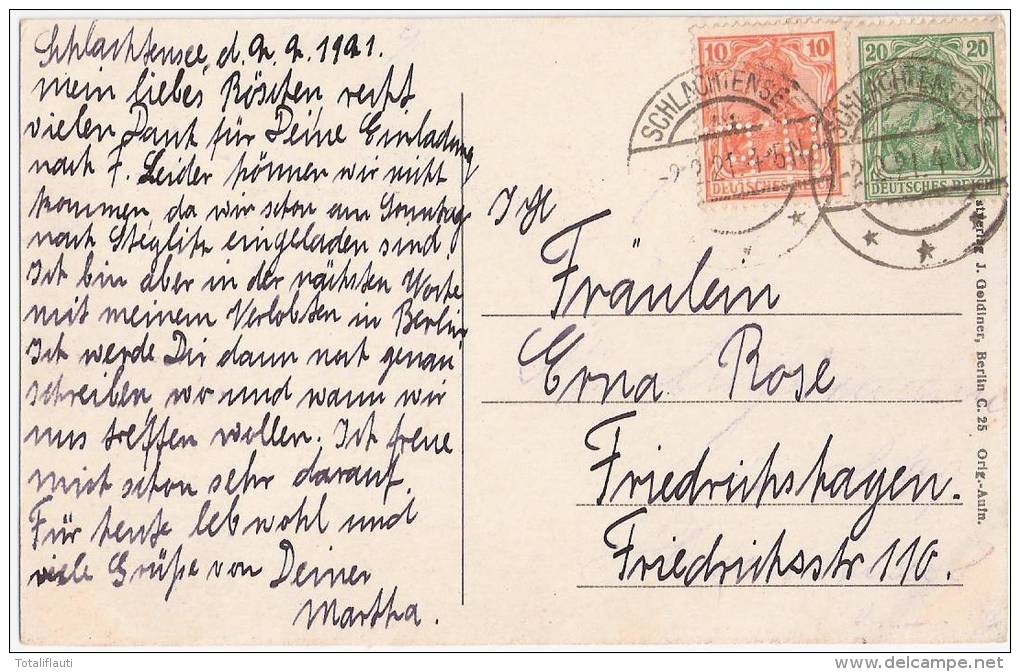 Schlachtensee, d. 2. 2. 1921.
Mein liebes Röschen recht
vielen Dank für Deine Einladung
nach F. Leider können wir nicht
kommen da wir schon am Sonntag
nach Steglitz eingeladen sind.
Ich bin aber in der nächsten Woche
mit meinem Verlobten in Berlin
Ich werde Dir dann noch genau
schreiben, wo und wann wir
uns treffen wollen. Ich freue
mich schon sehr darauf.
Für heute lebwohl und
viele Grüße von Deiner
Martha.
10 10
DEUTSCHES REICH
20 20
DEUTSCHES REICH
SCHLACHTENSEE
-2.2.21. 4-5N
SCHLACHTENSEE
-2.2.21. 4-5N
Fräulein
Erna Rose
Friedrichshagen.
Friedrichsstr 110.
J. Goldiner, Berlin C. 25 Orig.-Aufn.
Totaliflauti
www.delcampe.net